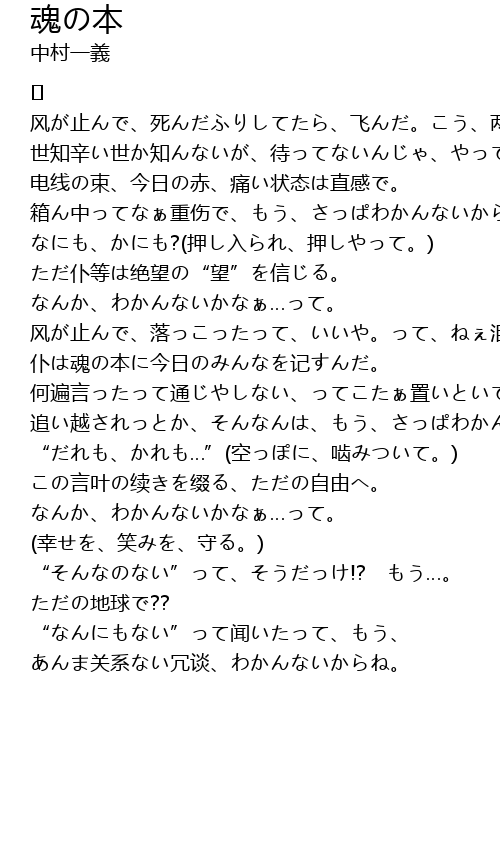 魂の本
中村一義
[]
风が止んで、死んだふりしてたら、飞んだ。こう、两
世知辛い世か知んないが、待ってないんじゃ、やって
电线の束、今日の赤、痛い状态は直感で。
箱ん中ってなぁ重伤で、もう、さっぱわかんないから
なにも、かにも?(押し入られ、押しやって。)
ただ仆等は绝望の“望”を信じる。
なんか、わかんないかなぁ…って。
风が止んで、落っこったって、いいや。って、ねぇ泪
仆は魂の本に今日のみんなを记すんだ。
何遍言ったって通じやしない、ってこたぁ置いといて
追い越されっとか、そんなんは、もう、さっぱわかん
“だれも、かれも…”(空っぽに、啮みついて。)
この言叶の续きを缀る、ただの自由へ。
なんか、わかんないかなぁ…って。
(幸せを、笑みを、守る。)
“そんなのない”って、そうだっけ!?　もう…。
ただの地球で??
“なんにもない”って闻いたって、もう、
あんま关系ない冗谈、わかんないからね。